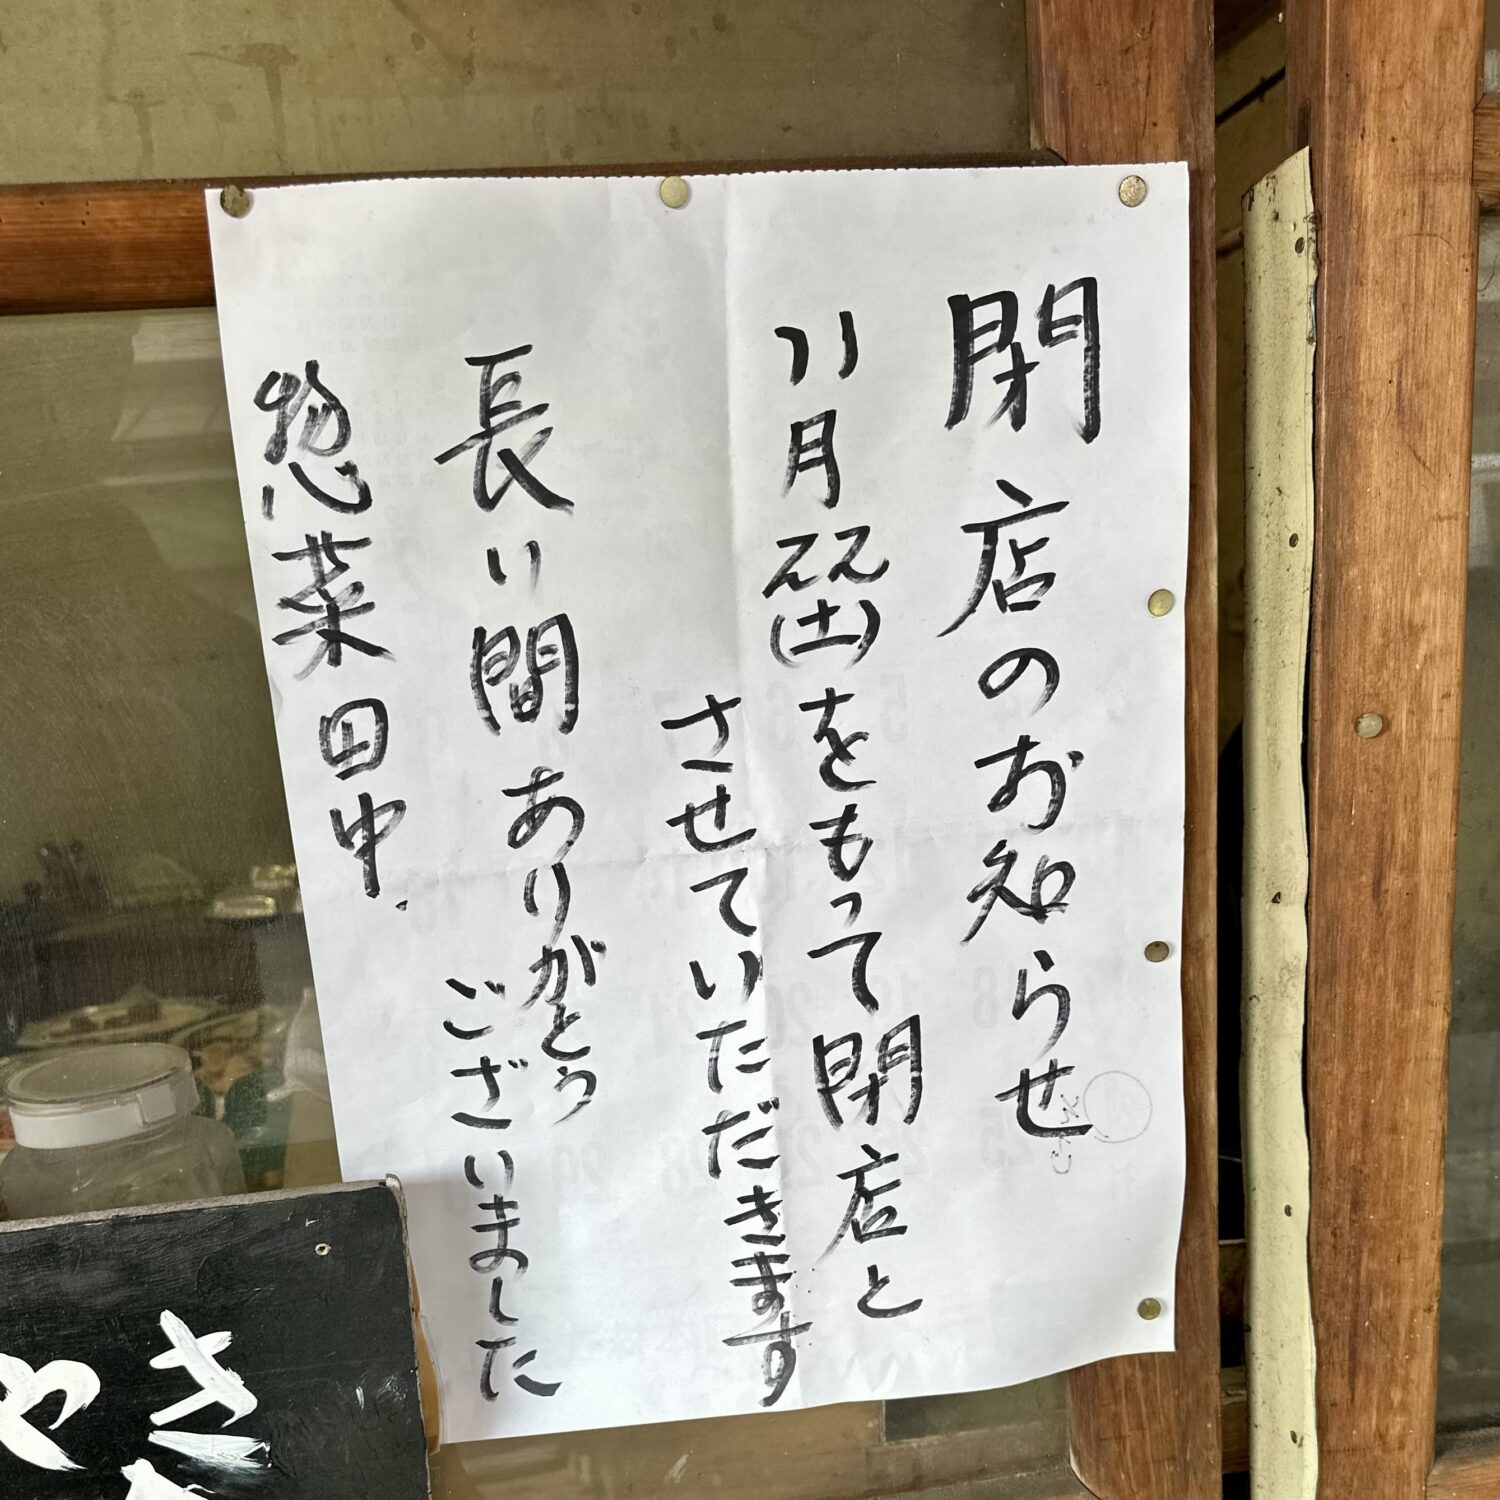 閉店のお知らせ
11月22(土)をもって閉店と
させていただきます
長い間ありがとう
ございました
惣菜田中